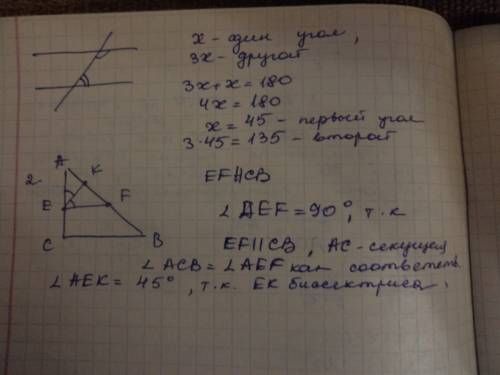 x - один угол,
3x - другой
3x + x = 180
4x = 180
x = 45 - первый угол
3·45 = 135 - второй
2.
A
K
E
F
C
B
EF∥CB
∠AEF = 90°, т.к
EF∥CB, AC - секущая
∠ACB = ∠AEF как соответств.
∠AEK = 45°, т.к. EK биссектриса.